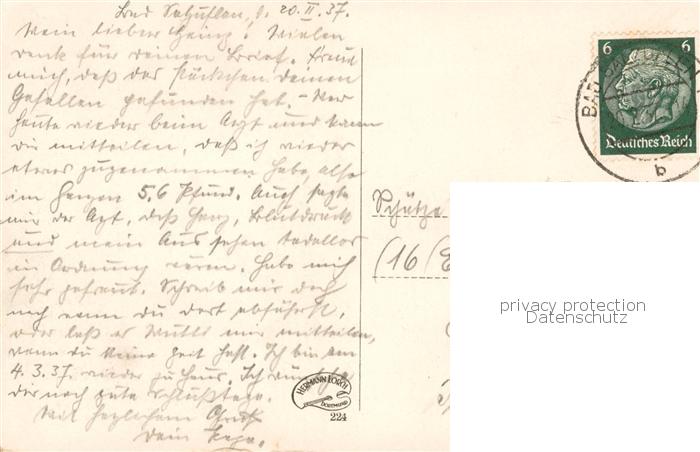 Bad Salzuflen, d. 20.II.37.
Mein lieber Heinz! Vielen
Dank für deinen Brief. Freue
mich, daß das Päckchen deinen
Gefallen gefunden hat. – War
heute wieder beim Arzt und kann
dir mitteilen, daß ich wieder
etwas zugenommen habe, also
im Ganzen 5,6 Pfund. Auch sagte
mir der Arzt, daß Herz, Blutdruck
und mein Aussehen tadellos
in Ordnung wären. Habe mich
sehr gefreut. Schreib mir doch
noch wann du dort abfährst,
oder laß es Mutti mir mitteilen,
wenn du keine Zeit hast. Ich bin am
4.3.37. wieder zu Haus. Ich wünsche
dir noch gute Schlußtage.
Mit herzlichem Gruß
Dein Papa.
6 6
Deutsches Reich
BAD SALZUFLEN
b
Schütze
(16
privacy protection
Datenschutz
HERMANN LORCH
DORTMUND
224